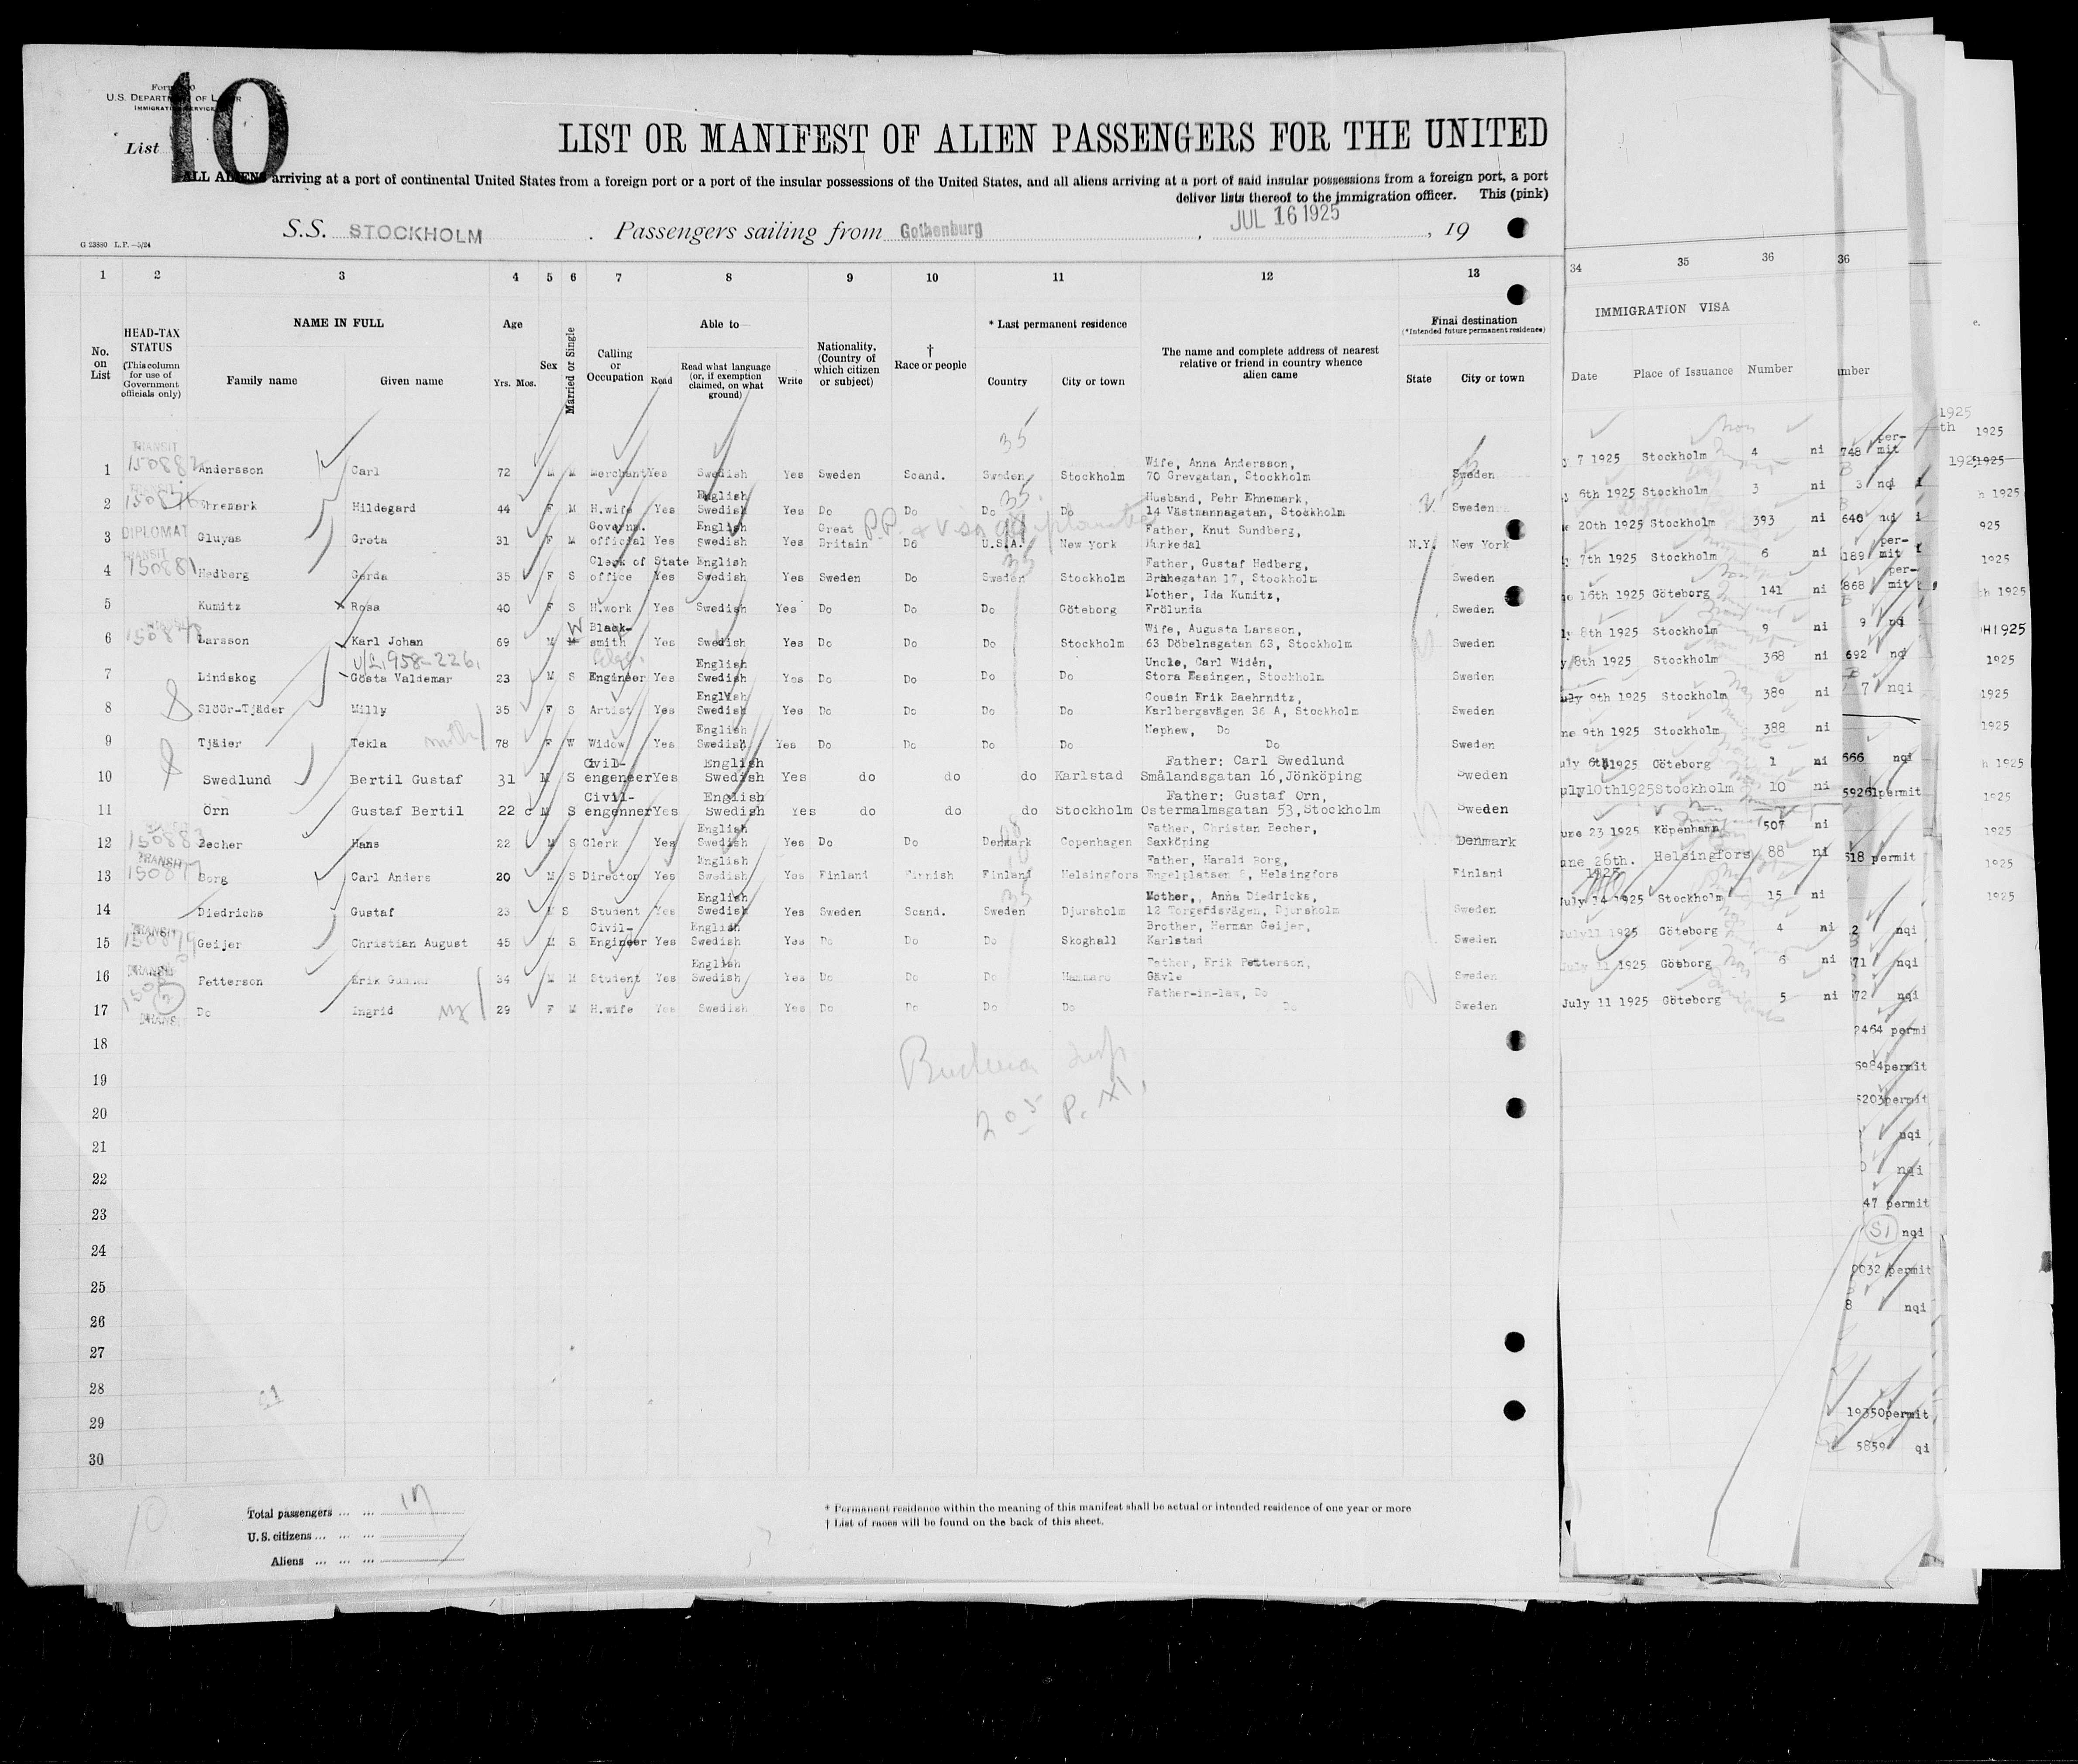 Form 500
U.S. DEPARTMENT OF LABOR
IMMIGRATION SERVICE
List 10
LIST OR MANIFEST OF ALIEN PASSENGERS FOR THE UNITED
ALL ALIENS arriving at a port of continental United States from a foreign port or a port of the insular possessions of the United States, and all aliens arriving at a port of said insular possessions from a foreign port, a port
deliver lists thereof to the immigration officer. This (pink)
G 23880 L.P.—5/24
S.S. STOCKHOLM . Passengers sailing from Gothenburg , JUL 16 1925 , 19
1 2 3 4 5 6 7 8 9 10 11 12 13 34 35 36 36
No. on List
HEAD-TAX STATUS (This column for use of Government officials only)
NAME IN FULL
Family name Given name
Age
Yrs. Mos.
Sex
Married or Single
Calling or Occupation
Able to—
Read Read what language (or, if exemption claimed, on what ground) Write
Nationality. (Country of which citizen or subject)
† Race or people
* Last permanent residence
Country City or town
The name and complete address of nearest relative or friend in country whence alien came
Final destination
(*Intended future permanent residence)
State City or town
IMMIGRATION VISA
Date Place of Issuance Number mber
35
TRANSIT
Wife, Anna Andersson,
1 150882 Andersson Carl 72 M M Merchant Yes Swedish Yes Sweden Scand. Sweden Stockholm 70 Grevgatan, Stockholm Sweden 7 1925 Stockholm 4 ni 748 permit
English Husband, Pehr Ehnemark,
2 Ehnemark Hildegard 44 F M H.wife Yes Swedish Yes Do Do Do Do 14 Västmannagatan, Stockholm Sweden 6th 1925 Stockholm 3 ni 3 nqi
DIPLOMAT Governm. English Great Father, Knut Sundberg,
3 Gluyas Greta 31 F M official Yes Swedish Yes Britain Do U.S.A. New York Munkedal N.Y. New York 20th 1925 Stockholm 393 ni 640 nqi
TRANSIT Clerk of State English Father, Gustaf Hedberg,
4 150881 Hedberg Gerda 35 F S office Yes Swedish Yes Sweden Do Sweden Stockholm Brahegatan 17, Stockholm Sweden 7th 1925 Stockholm 6 ni 189 permit
Mother, Ida Kumitz,
5 Kumitz Rosa 40 F S H.work Yes Swedish Yes Do Do Do Göteborg Frölunda Sweden 16th 1925 Göteborg 141 ni 868 permit
Black- Wife, Augusta Larsson,
6 150878 Larsson Karl Johan 69 M W smith Yes Swedish Yes Do Do Do Stockholm 63 Döbelnsgatan 63, Stockholm Sweden 8th 1925 Stockholm 9 ni 9 nqi
English Uncle, Carl Widén,
7 Lindskog Gösta Valdemar 23 M S Engineer Yes Swedish Yes Do Do Do Do Stora Essingen, Stockholm Sweden 8th 1925 Stockholm 368 ni 692 nqi
English Cousin Erik Baehrnitz,
8 Slöör-Tjäder Milly 35 F S Artist Yes Swedish Yes Do Do Do Do Karlbergsvägen 36 A, Stockholm Sweden July 9th 1925 Stockholm 389 ni 7 nqi
English Nephew, Do
9 Tjäder Tekla 78 F W Widow Yes Swedish Yes Do Do Do Do Do Sweden 9th 1925 Stockholm 388 ni
Civil- English Father: Carl Swedlund
10 Swedlund Bertil Gustaf 31 M S engeneer Yes Swedish Yes do do do Karlstad Smålandsgatan 16, Jönköping Sweden July 6th 1925 Göteborg 1 ni 666 nqi
Civil- English Father: Gustaf Orn,
11 Örn Gustaf Bertil 22 M S engenner Yes Swedish Yes do do do Stockholm Ostermalmsgatan 53, Stockholm Sweden July 10th 1925 Stockholm 10 ni permit
English Father, Christan Becher,
12 150883 Becher Hans 22 M S Clerk Yes Swedish Yes Do Do Denmark Copenhagen Saxköping Denmark June 23 1925 Köpenhamn 507 ni
TRANSIT English Father, Harald Borg,
13 150877 Borg Carl Anders 20 M S Director Yes Swedish Yes Finland Finnish Finland Helsingfors Engelplatsen 8, Helsingfors Finland June 26th. 1925 Helsingfors 88 ni 518 permit
English Mother, Anna Diedrichs,
14 Diedrichs Gustaf 23 M S Student Yes Swedish Yes Sweden Scand. Sweden Djursholm 12 Torgerdsvägen, Djursholm Sweden July 14 1925 Stockholm 15 ni
TRANSIT Civil- English Brother, Herman Geijer,
15 150879 Geijer Christian August 45 M S Engineer Yes Swedish Yes Do Do Do Skoghall Karlstad Sweden July 11 1925 Göteborg 4 ni 2 nqi
TRANSIT English Father, Erik Petterson,
16 Petterson Erik Gunnar 34 M M Student Yes Swedish Yes Do Do Do Hammarö Gävle Sweden July 11 1925 Göteborg 6 ni 571 nqi
Father-in-law, Do
17 TRANSIT Do Ingrid 29 F M H.wife Yes Swedish Yes Do Do Do Do Do Sweden July 11 1925 Göteborg 5 ni 572 nqi
18 2464 permi
19 6984 permit
20 5203 permit
21 nqi
22 nqi
23 47 permit
24 SI nqi
25 0032 permit
26 8 nqi
27
28
29 19350 permit
30 5859 qi
Total passengers ... ... 17
U.S. citizens ... ... ...
Aliens ... ... ...
* Permanent residence within the meaning of this manifest shall be actual or intended residence of one year or more
† List of races will be found on the back of this sheet.
10